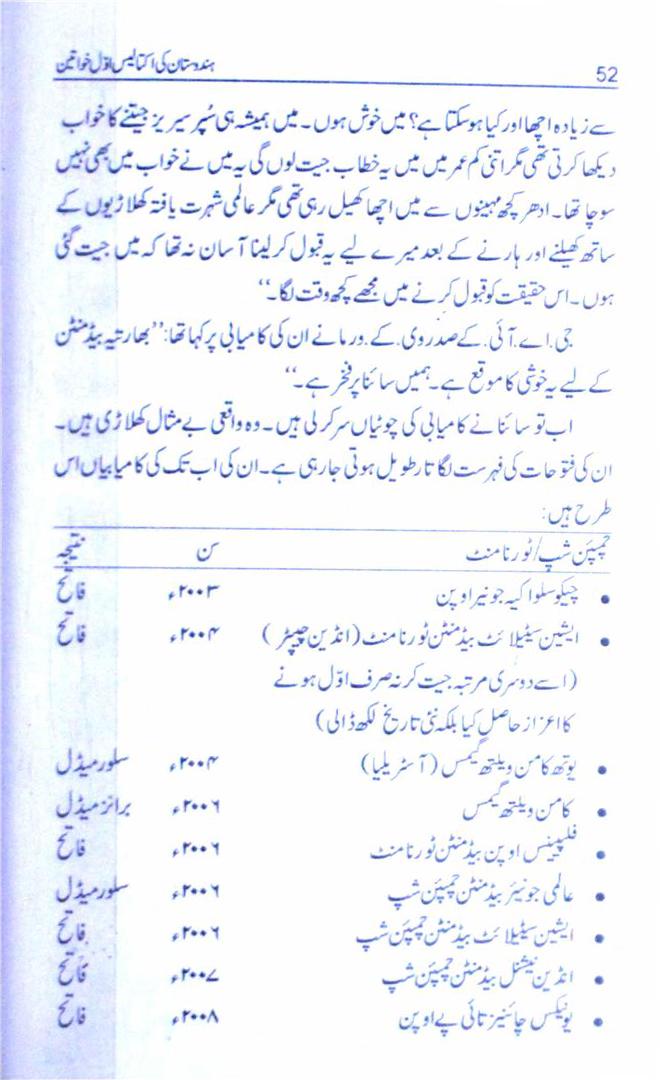 52 ہندوستان کی اکتالیس اوّل خواتین
سے زیادہ اچھا اور کیا ہوسکتا ہے؟ میں خوش ہوں۔ میں ہمیشہ ہی سُپر سیریز جیتنے کا خواب
دیکھا کرتی تھی مگر اتنی کم عمر میں میں یہ خطاب جیت لوں گی یہ میں نے خواب میں بھی نہیں
سوچا تھا۔ ادھر کچھ مہینوں سے میں اچھا کھیل رہی تھی مگر عالمی شہرت یافتہ کھلاڑیوں کے
ساتھ کھیلنے اور ہارنے کے بعد میرے لیے یہ قبول کرلینا آسان نہ تھا کہ میں جیت گئی
ہوں۔ اس حقیقت کو قبول کرنے میں مجھے کچھ وقت لگا۔‘‘
جی.اے.آئی. کے صدر وی. کے. ورما نے ان کی کامیابی پر کہا تھا: ’’بھارتیہ بیڈمنٹن
کے لیے یہ خوشی کا موقع ہے۔ ہمیں سائنا پر فخر ہے۔‘‘
اب تو سائنا نے کامیابی کی چوٹیاں سر کرلی ہیں۔ وہ واقعی بے مثال کھلاڑی ہیں۔
ان کی فتوحات کی فہرست لگاتار طویل ہوتی جارہی ہے۔ ان کی اب تک کی کامیابیاں اس
طرح ہیں:
چمپئن شپ/ٹورنامنٹ سن نتیجہ
• چیکوسلواکیہ جونیر اوپن ۲۰۰۳ء فاتح
• ایشین سیٹیلائٹ بیڈمنٹن ٹورنامنٹ (انڈین چیپٹر) ۲۰۰۴ء فاتح
(اسے دوسری مرتبہ جیت کر نہ صرف اوّل ہونے
کا اعزاز حاصل کیا بلکہ نئی تاریخ لکھ ڈالی)
• یوتھ کامن ویلتھ گیمس (آسٹریلیا) ۲۰۰۴ء سلور میڈل
• کامن ویلتھ گیمس ۲۰۰۶ء برانز میڈل
• فلپینس اوپن بیڈمنٹن ٹورنامنٹ ۲۰۰۶ء فاتح
• عالمی جونیئر بیڈمنٹن چمپئن شپ ۲۰۰۶ء سلور میڈل
• ایشین سیٹیلائٹ بیڈمنٹن چمپئن شپ ۲۰۰۶ء فاتح
• انڈین نیشنل بیڈمنٹن چمپئن شپ ۲۰۰۷ء فاتح
• یونیکس چائنیز تائی پے اوپن ۲۰۰۸ء فاتح